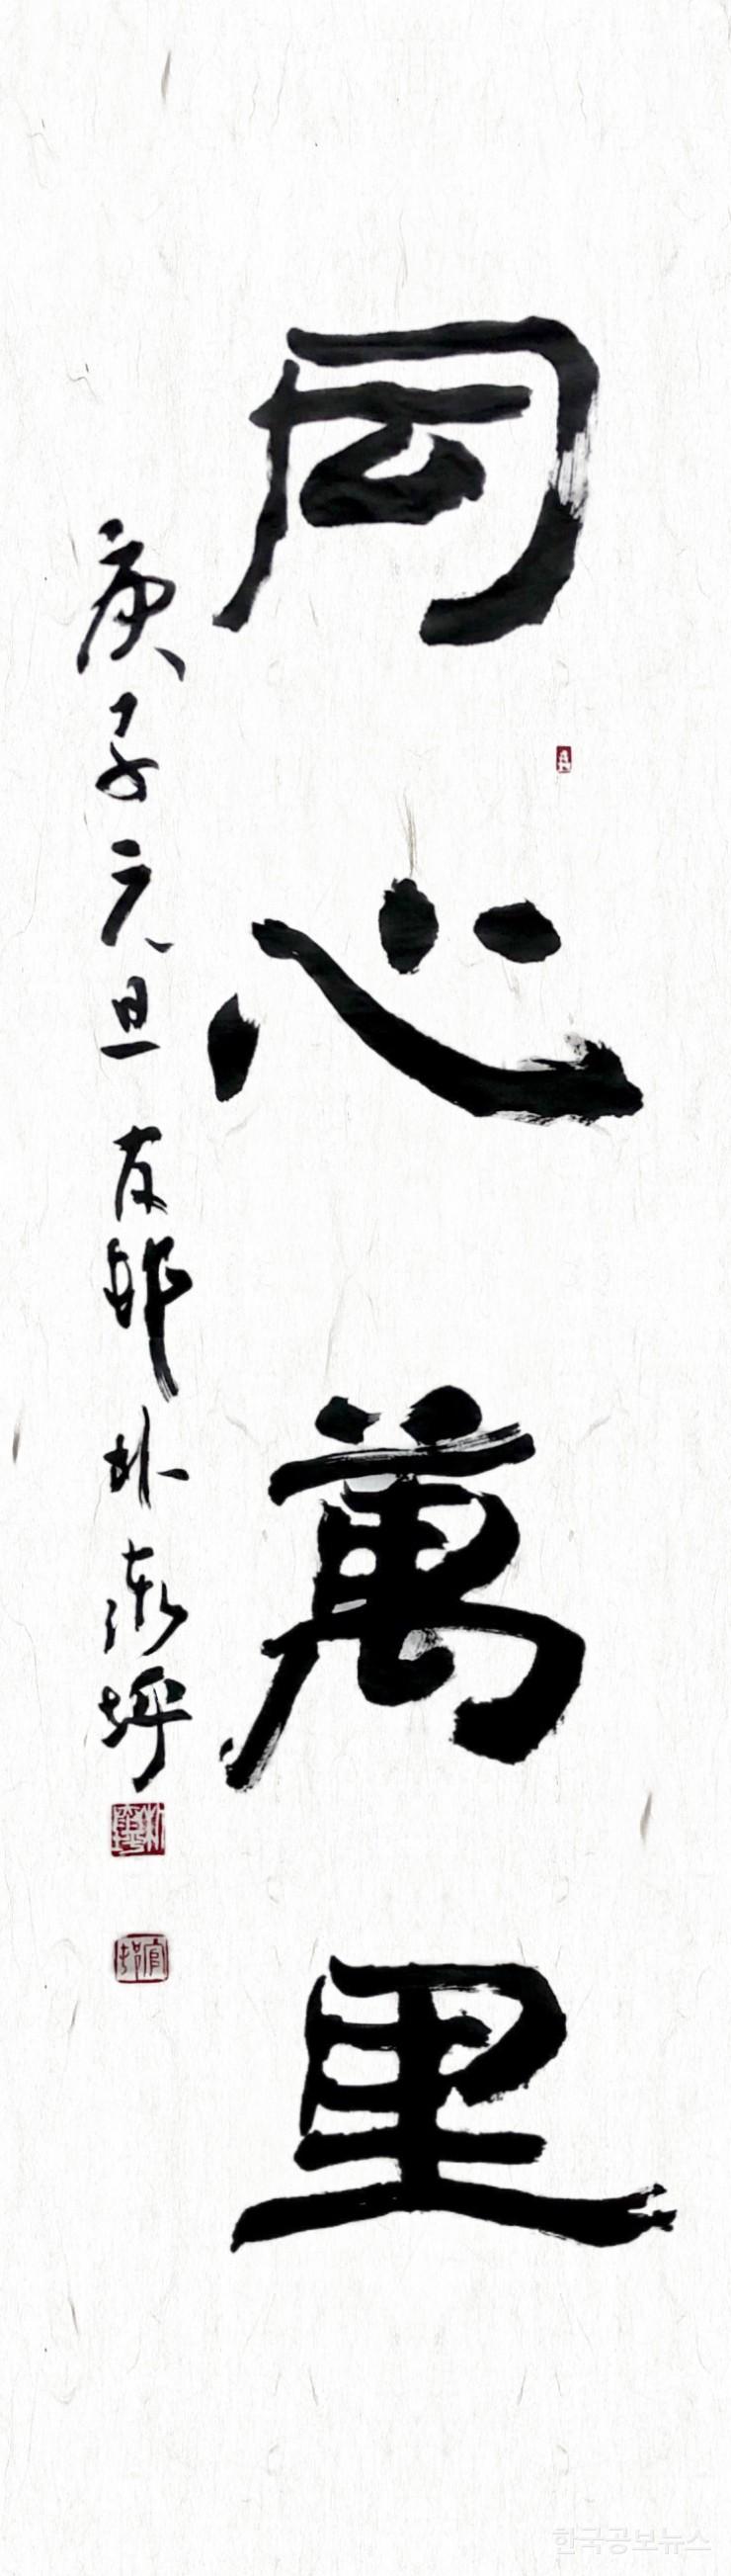 同心萬里
庚子元旦 邨 朴 坪
한국공보뉴스